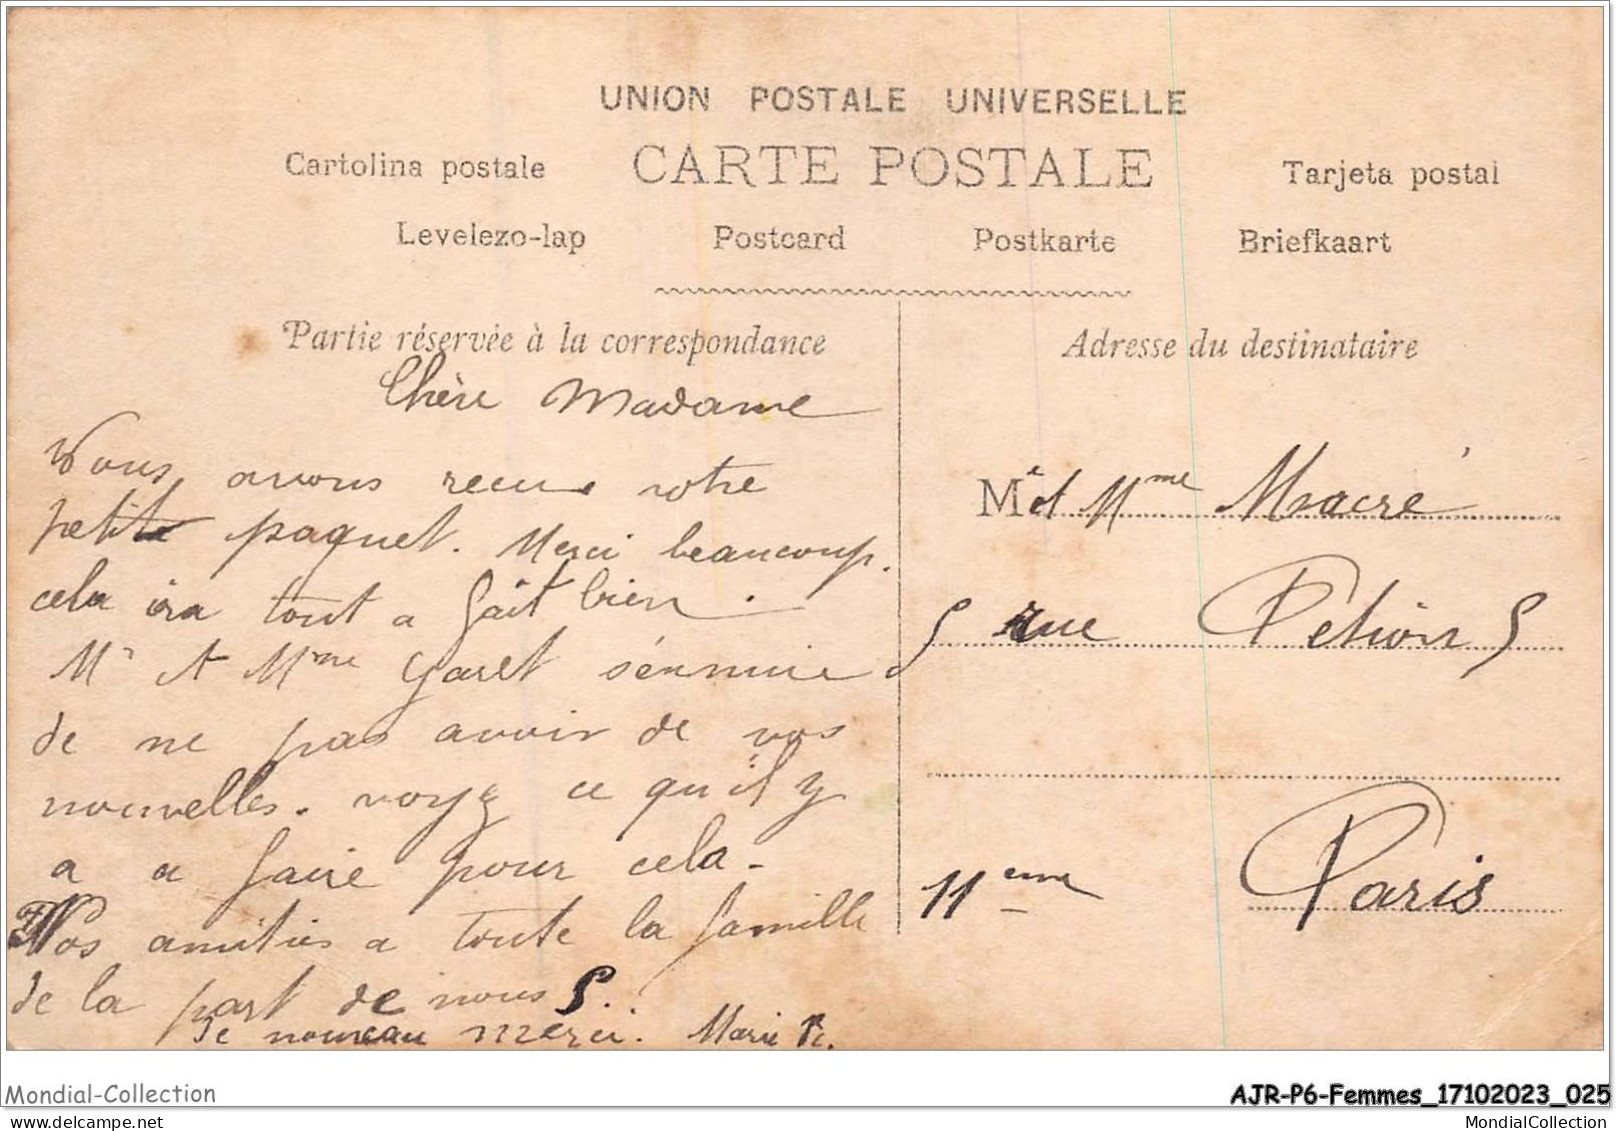 UNION POSTALE UNIVERSELLE
Cartolina postale CARTE POSTALE Tarjeta postal
Levelezo-lap Postcard Postkarte Briefkaart
Partie réservée à la correspondance
Chère Madame
Nous avons recue votre
petite paquet. Merci beaucoup.
cela ira tout a fait bien.
Mr et Mme Garet s'énnuie
de ne pas avoir de vos
nouvelles. voyez ce qu'il y
a a faire pour cela.
Nos amitiés a toute la famille
de la part de nous 5.
de nouveau merci. Marie R.
Adresse du destinataire
Mr et Mme Macré
5 rue Petion 5
11eme Paris
Mondial-Collection
AJR-P6-Femmes_17102023_025
delcampe.net
MondialCollection